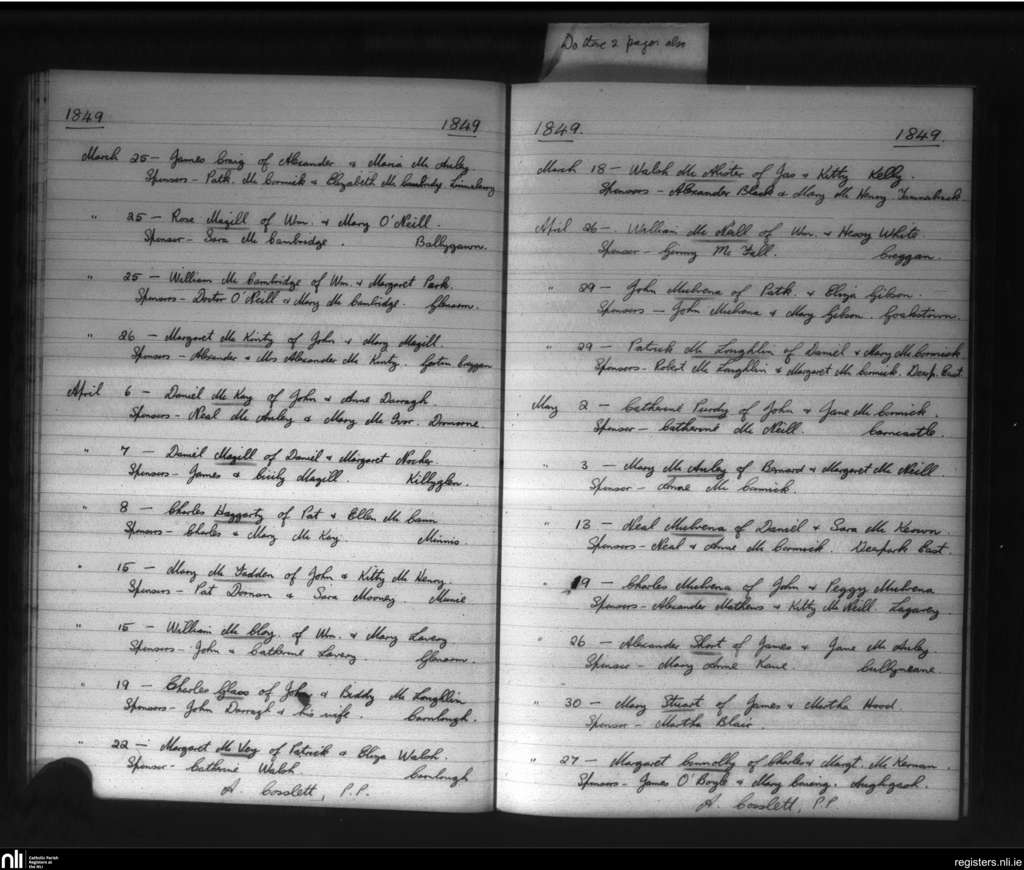 Do these 2 pages also
1849
1849
March 25 — James Craig of Alexander & Maria Mc Auley
Sponsors - Patk. Mc Cormick & Elizabeth Mc Cambridge
" 25 — Rose Magill of Wm. & Mary O'Neill.
Sponsor - Sara Mc Cambridge. Ballygawn.
" 25 — William Mc Cambridge of Wm. & Margaret Park.
Sponsors - Doctor O'Neill & Mary Mc Cambridge. Glenarm.
" 26 — Margaret Mc Kinty of John & Mary Magill.
Sponsors - Alexander & Mrs Alexander Mc Kinty. Creggan
April 6 — Daniel Mc Kay of John & Anne Darragh.
Sponsors - Neal Mc Auley & Mary Mc Ivor. Drumourne
" 7 — Daniel Magill of Daniel & Margaret
Sponsors - James & Cicily Magill. Killyglen.
" 8 — Charles Haggarty of Pat & Ellen Mc Cann
Sponsors - Charles & Mary Mc Kay. Minnis.
" 15 — Mary Mc Fadden of John & Kitty Mc Henry.
Sponsors - Pat Dornan & Sara Mooney.
" 15 — William Mc Cloy of Wm. & Mary Lavery
Sponsors - John & Catherine Lavery. Glenarm.
" 19 — Charles Glass of John & Biddy Mc Loughlin
Sponsors - John Darragh & his wife. Carnlough.
" 22 — Margaret Mc Vey of Patrick & Eliza Walsh.
Sponsor - Catherine Walsh. Carnlough
A. Cosslett, P.P.
1849.
1849.
March 18 — Walsh Mc Alister of Jas & Kitty Kelly.
Sponsors - Alexander Black & Mary Mc Henry.
April 26 — William Mc Neill of Wm. & Henry White.
Sponsor - Mc Fall. Creggan.
" 29 — John Mulvena of Patk. & Eliza Gibson.
Sponsors - John Mulvena & Mary Gibson.
" 29 — Patrick Mc Loughlin of Daniel & Mary Mc Cormick.
Sponsors - Robert Mc Loughlin & Margaret Mc Cormick. Deerp. East.
May 2 — Catherine Purdy of John & Jane Mc Cormick.
Sponsor - Catherine Mc Neill. Carncastle.
" 3 — Mary Mc Auley of Bernard & Margaret Mc Neill
Sponsor - Anne Mc Cormick.
" 13 — Neal Mulvena of Daniel & Sara Mc Keown.
Sponsors - Neal & Anne Mc Cormick. Deerpark East.
" 19 — Charles Mulvena of John & Peggy Mulvena
Sponsors - Alexander Mathews & Kitty Mc Neill.
" 26 — Alexander Short of James & Jane Mc Auley.
Sponsor - Mary Anne Kane
" 30 — Mary Stuart of James & Martha Hood.
Sponsor - Martha Blair.
" 27 — Margaret Connolly of Charles & Margt. Mc Kernan.
Sponsors - James O'Boyle & Mary
A. Cosslett, P.P
nli
Catholic Parish
Registers at
the NLI
registers.nli.ie